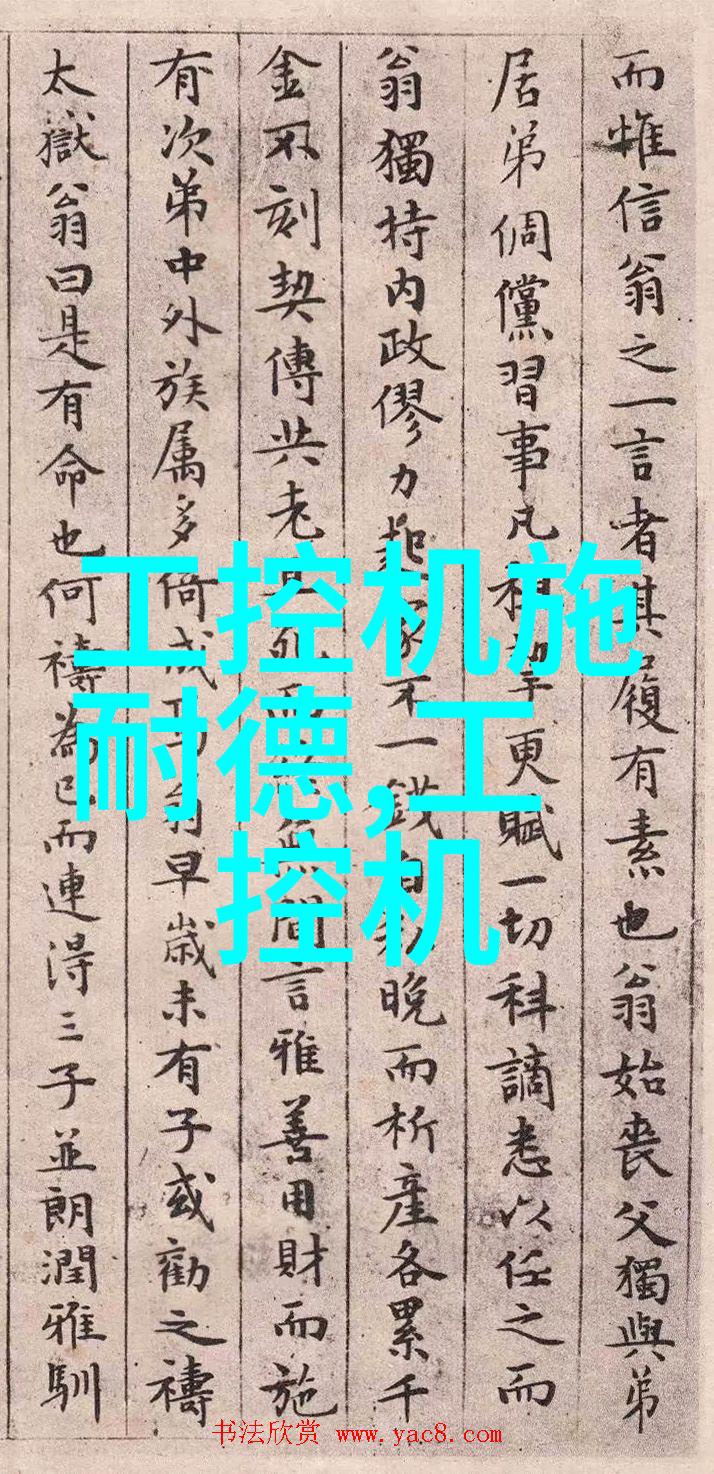 而惟信翁之一言者其履有素也翁始喪父獨與弟
居弟倜儻習事凡租更賦一切科謫悉以任之而
翁獨持内政僇力起家不一錢自私晚而析產各累千
金不刻契傳共老且死而無間言雅善用財而施
有次弟中外族属多倚成翁早歲未有子或勸之禱
太嶽翁曰是有命也何禱為已而連得三子並朗潤雅馴
工控机施
耐德,工
控机
书法欣赏 www.yac8.com